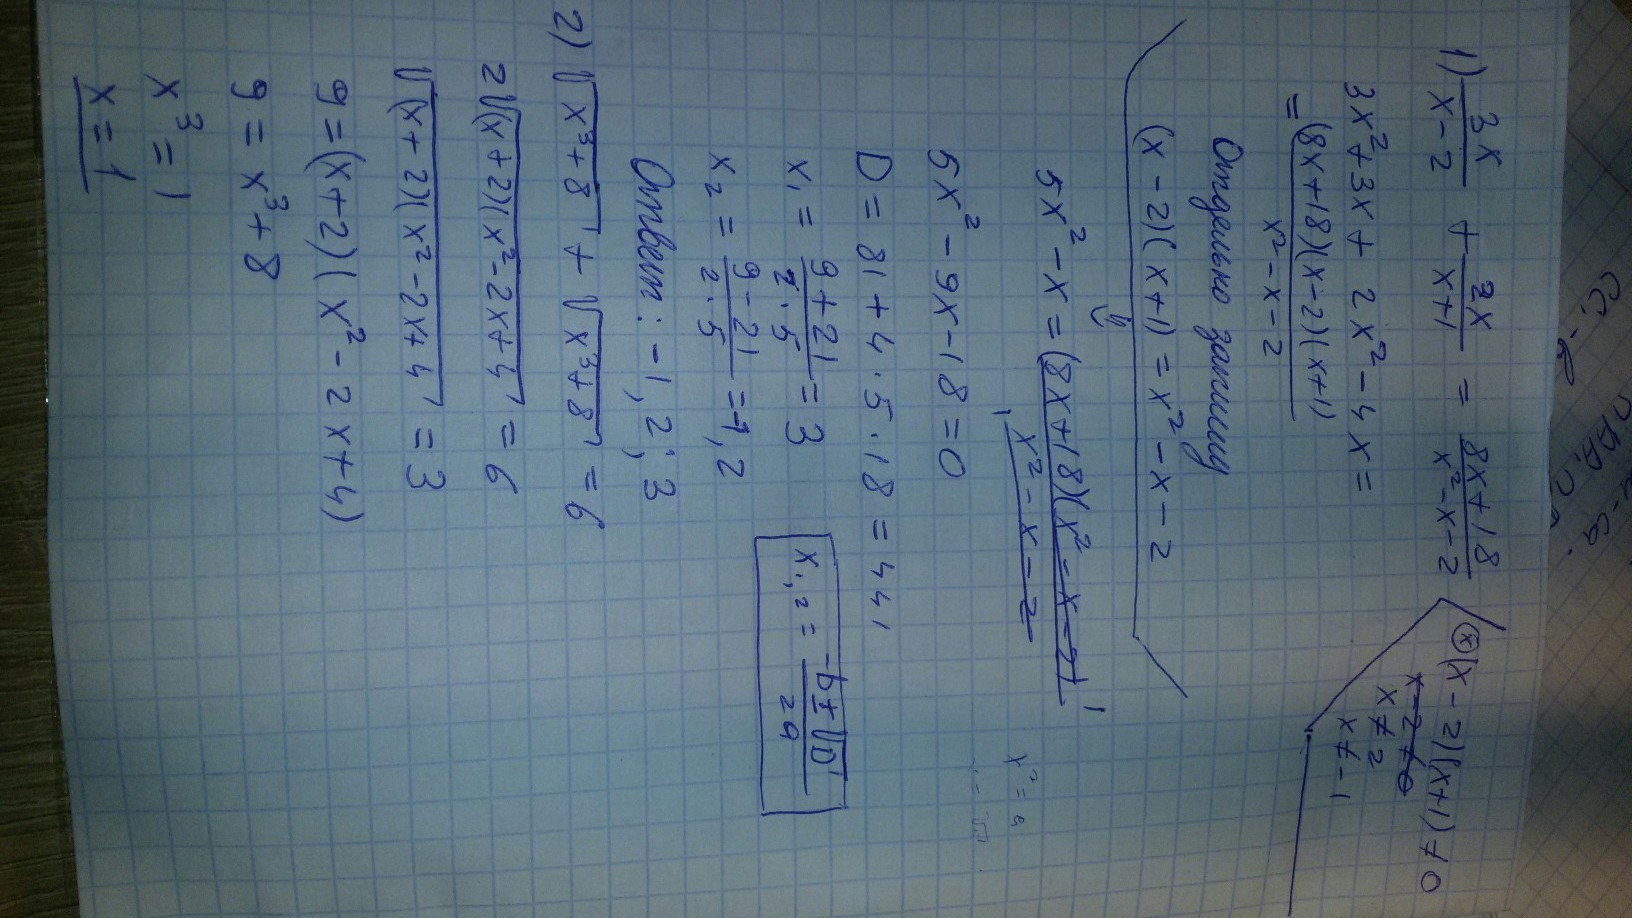 1) 3x/(x-2) + 2x/(x+1) = (8x+18)/(x²-x-2)
(*) (x-2)(x+1) ≠ 0
x-2≠0
x ≠ 2
x ≠ -1
3x²+3x + 2x²-4x =
= (8x+18)(x-2)(x+1)/(x²-x-2)
Отдельно запишу
(x-2)(x+1) = x²-x-2
⇓
5x²-x = (8x+18)(x²-x-2)/(x²-x-2)
5x²-9x-18=0
x²=a
D = 81+4·5·18 = 441
x₁ = (9+21)/(2·5) = 3
x₂ = (9-21)/(2·5) = -1,2
x₁,₂ = (-b±√D)/2a
Ответ: -1,2; 3
2) √(x³+8) + √(x³+8) = 6
2√((x+2)(x²-2x+4)) = 6
√((x+2)(x²-2x+4)) = 3
9=(x+2)(x²-2x+4)
9 = x³+8
x³=1
x=1